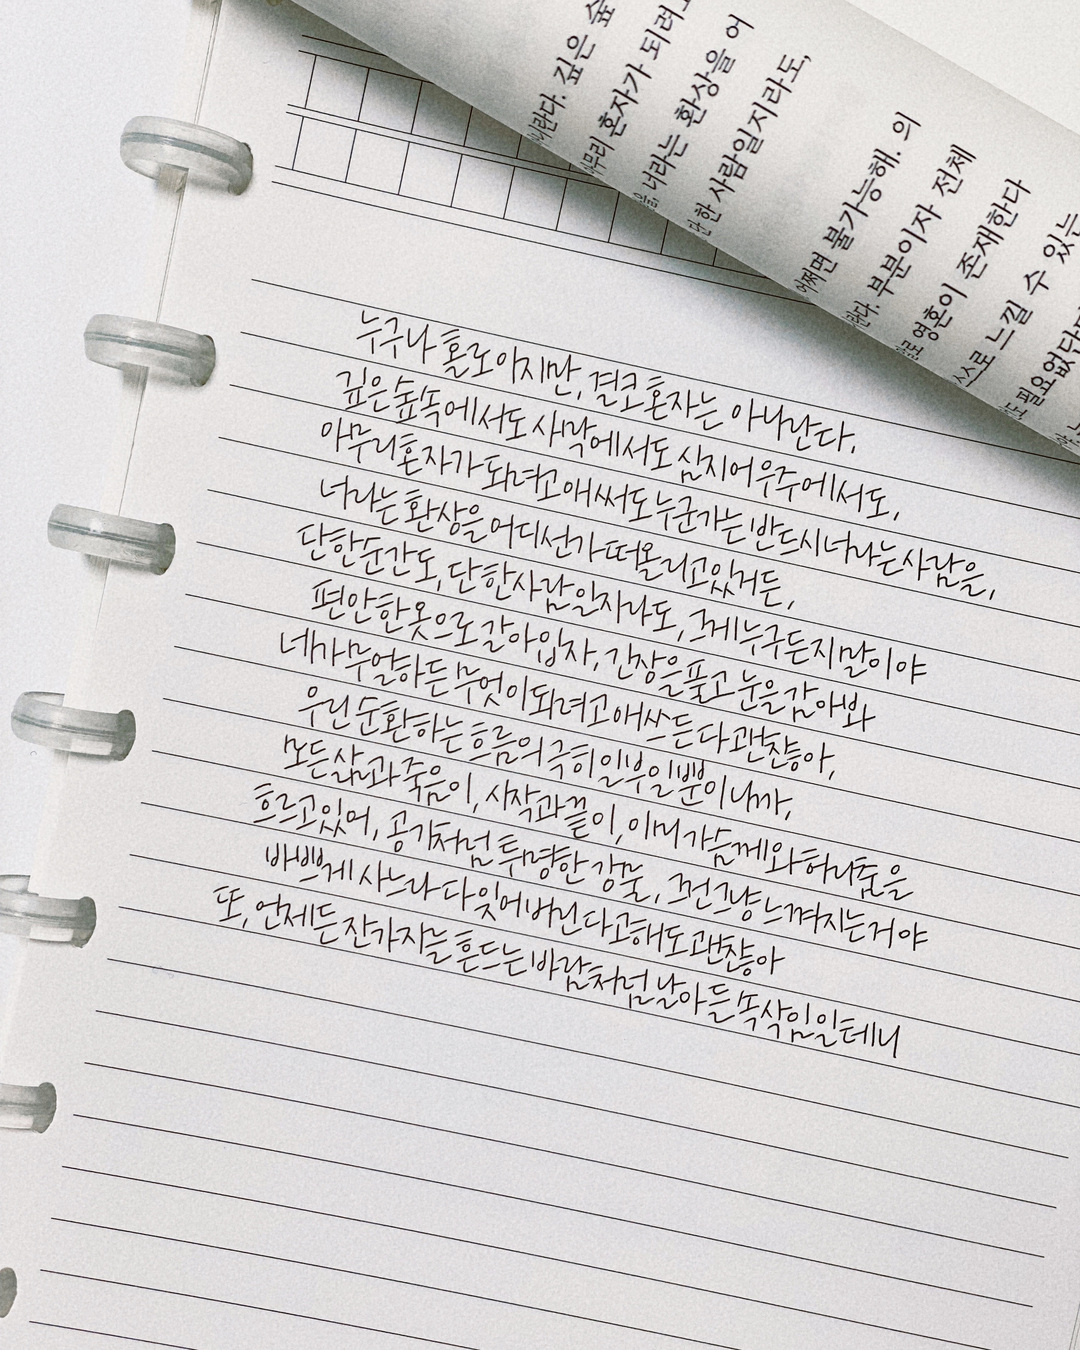 니란다. 깊은 숲
아무리 혼자가 되려고
너라는 환상을 어
단 한 사람일지라도,
어쩌면 불가능해. 의
부분이자 전체
영혼이 존재한다
스스로 느낄 수 있는
필요없단다
누구나 홀로이지만, 결코 혼자는 아니란다,
깊은 숲속에서도 사막에서도 심지어 우주에서도,
아무리 혼자가 되려고 애써도 누군가는 반드시 너라는 사람을,
너라는 환상을 어디선가 떠올리고 있거든,
단 한순간도, 단 한 사람일지라도, 그게 누구든지 말이야
편안한 옷으로 갈아입자, 긴장을 풀고 눈을 감아봐
네가 무얼하든 무엇이 되려고 애쓰든 다 괜찮아,
우린 순환하는 흐름의 극히 일부일 뿐이니까,
모든 삶과 죽음이, 시작과 끝이, 이미 가슴께와 허리춤을
흐르고 있어, 공기처럼 투명한 강물, 그건 그냥 느껴지는거야
바쁘게 사느라 다 잊어버린다고 해도 괜찮아
또, 언제든 잔가지를 흔드는 바람처럼 날아든 속삭임일테니